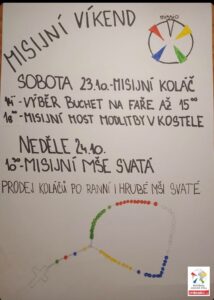 MISIJNÍ VÍKEND
SOBOTA 23.10.-MISIJNÍ KOLÁČ
14⁰⁰-VÝBĚR BUCHET NA FAŘE AŽ 15⁰⁰
18⁰⁰-MISIJNÍ MOST MODLITBY V KOSTELE
NEDĚLE 24.10.
10³⁰-MISIJNÍ MŠE SVATÁ
PRODEJ KOLÁČŮ PO RANNÍ I HRUBÉ MŠI SVATÉ